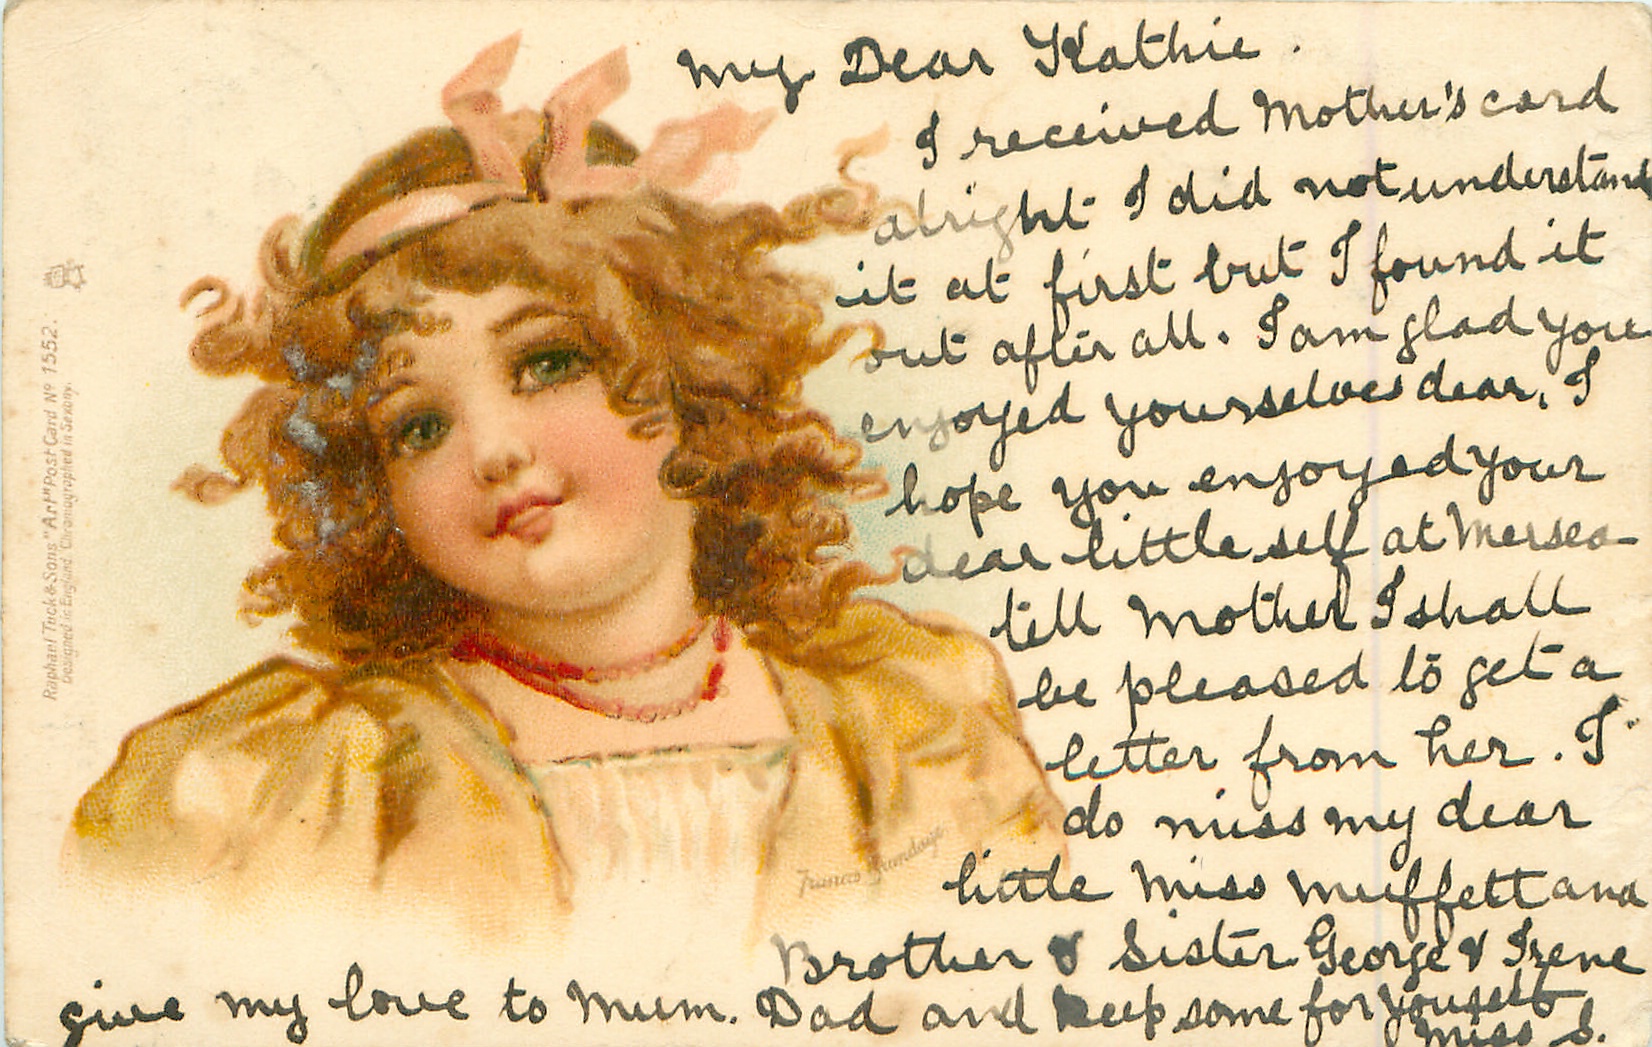 My Dear Kathie.
I received Mother's card
alright I did not understand
it at first but I found it
out after all. I am glad you
enjoyed yourselves dear, I
hope you enjoyed your
dear little self at Mersea
till Mother I shall
be pleased to get a
letter from her. I
do miss my dear
little Miss Muffett and
Brother & Sister George & Irene
give my love to Mum. Dad and keep some for yourself
Miss S.
Raphael Tuck & Sons "Art" Post Card No 1552.
Designed in England Chromographed in Saxony.
Frances Brundage